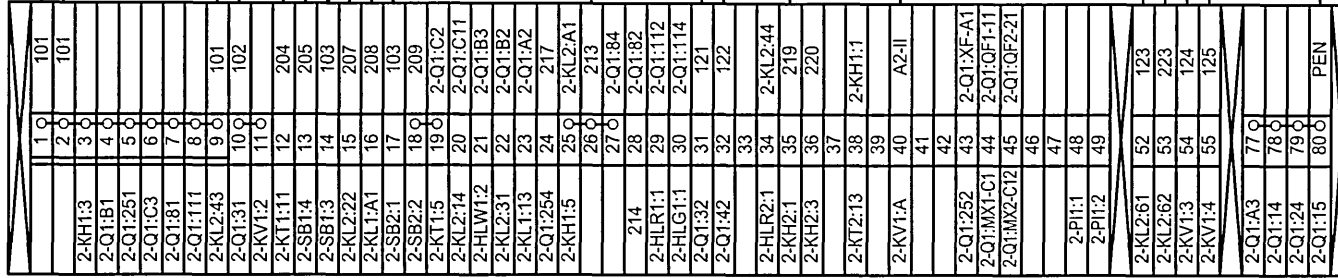 1 101
2 101
2-KH1:3 3
2-Q1:B1 4
2-Q1:251 5
2-Q1:C3 6
2-Q1:81 7
2-Q1:111 8
2-KL2:43 9 101
2-Q1:31 10 102
2-KV1:2 11
2-KT1:11 12 204
2-SB1:4 13 205
2-SB1:3 14 103
2-KL2:22 15 207
2-KL1:A1 16 208
2-SB2:1 17 103
2-SB2:2 18 209
2-KT1:5 19 2-Q1:C2
2-KL2:14 20 2-Q1:C11
2-HLW1:2 21 2-Q1:B3
2-KL2:31 22 2-Q1:B2
2-KL1:13 23 2-Q1:A2
2-Q1:254 24 217
2-KH1:5 25 2-KL2:A1
26 213
27 2-Q1:84
214 28 2-Q1:82
2-HLR1:1 29 2-Q1:112
2-HLG1:1 30 2-Q1:114
2-Q1:32 31 121
2-Q1:42 32 122
33
2-HLR2:1 34 2-KL2:44
2-KH2:1 35 219
2-KH2:3 36 220
37
2-KT2:13 38 2-KH1:1
39
2-KV1:A 40 A2-II
41
42
2-Q1:252 43 2-Q1:XF-A1
2-Q1:MX1-C1 44 2-Q1:QF1-11
2-Q1:MX2-C12 45 2-Q1:QF2-21
46
47
2-PI1:1 48
2-PI1:2 49
2-KL2:61 52 123
2-KL2:62 53 223
2-KV1:3 54 124
2-KV1:4 55 125
2-Q1:A3 77
2-Q1:14 78
2-Q1:24 79
2-Q1:15 80 PEN